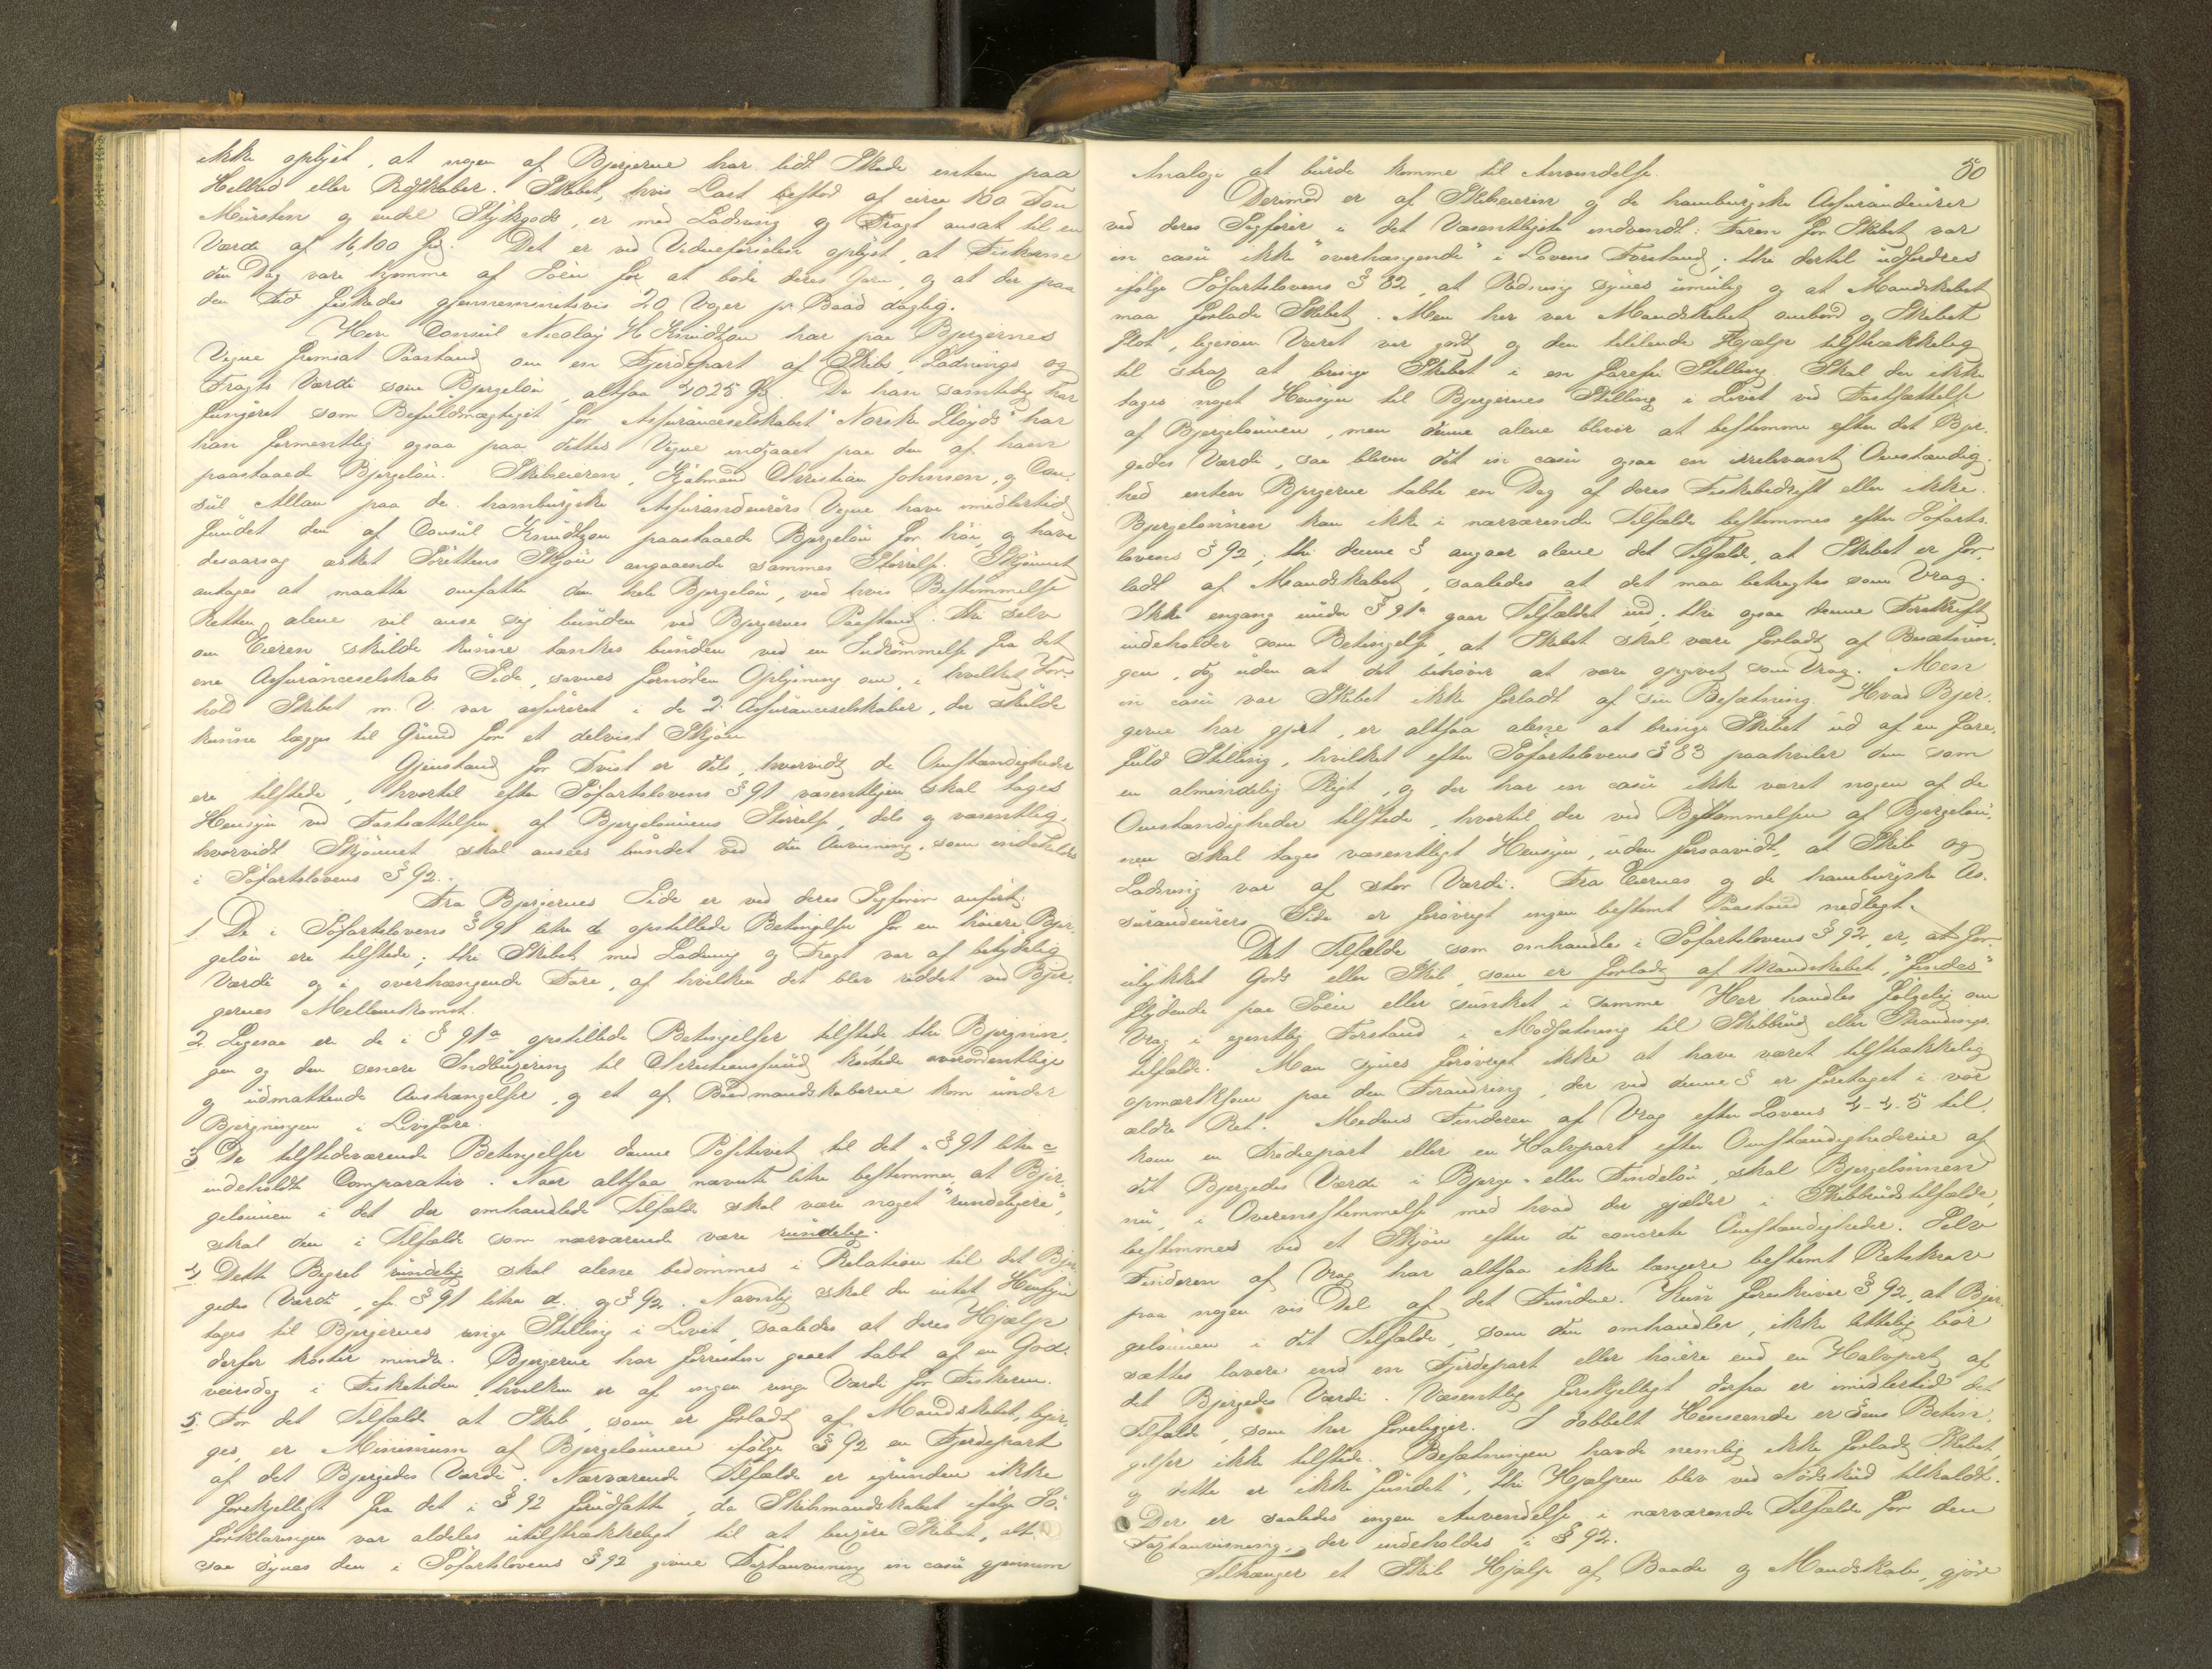 ikke oplyst, at nogen af Bjergerne har lidt Skade enten paa
Helbred eller Redskaber. Skibet, hvis Last bestod af circa 180 Ton
Mursten og endel Stykgods, er med Ladning og Fragt ansat til en
Værdi af 16,100 Spd. Det er ved Vidneførselen oplyst, at Fiskerne
den Dag vare komne af Søen for at bøde deres Garn, og at der paa
den Tid fiskedes gjennemsnitsvis 20 Voger pr Baad daglig.
Herr Consul Nicolay H. Knudtzon har paa Bjergernes
Vegne fremsat Paastand om en Fjerdepart af Skibs, Ladnings og
Fragts Værdi som Bjergeløn, altsaa 4025 Spd. Da han samtidig har
fungeret som Befuldmægtiget for Assuranceselskabet "Norske Lloyds" har
han formentlig ogsaa paa dettes Vegne indgaaet paa den af ham
paastaaede Bjergeløn. Skibseieren, Kjøbmand Christian Johnsen, og Con-
sul Allan paa de hamburgske Assurandeurers Vegne have imidlertid
fundet den af Consul Knudtzon paastaaede Bjergeløn for høi, og have
desaarsag æsket Sørettens Skjøn angaaende sammes Størrelse. Skjønnet
antages at maatte omfatte den hele Bjergeløn, ved hvis Bestemmelse
Retten alene vil anse sig bunden ved Bjergernes Paastand. Thi selv
om Eieren skulde kunne tænkes bunden ved en Indrømmelse fra det
ene Assuranceselskabs Side, savnes fornøden Oplysning om, i hvilket For-
hold Skibet m. V. var assureret i de 2 Assuranceselskaber, der skulde
kunne lægges til Grund for et delvist Skjøn.
Gjenstand for Tvist er dels, hvorvidt de Omstændigheder
ere tilstede, hvortil efter Søfartslovens § 91 væsentligen skal tages
Hensyn ved Fastsættelsen af Bjergelønnens Størrelse, dels og væsentlig,
hvorvidt Skjønnet skal ansees bundet ved den Anvisning, som indeholdes
i Søfartslovens § 92.
Fra Bjergernes Side er ved deres Sagfører anført:
1. De i Søfartslovens § 91 litra d opstillede Betingelser for en høiere Bjer-
geløn ere tilstede; thi Skibet med Ladning og Fragt var af betydelig
Værdi og i overhængende Fare, af hvilken det blev reddet ved Bjer-
gernes Mellemkomst.
2. Ligesaa ere de i § 91 a opstillede Betingelser tilstede thi Bjergnin-
gen og den senere Indbugsering til Christianssund kostede overordentlige
og udmattende Anstrængelser, og et af Baadmandskaberne kom under
Bjergningen i Livsfare.
3 De tilstedeværende Betingelser danne Positivet til det i § 91 litra c
indeholdte Comparativ. Naar altsaa nævnte litra bestemmer, at Bjer-
gelønnen i det der omhandlede Tilfælde skal være noget "rundeligere",
skal den i Tilfælde som nærværende være rundelig.
4 Dette Begreb rundelig skal alene bedømmes i Relation til det Bjer-
gedes Værdi, cfr. § 91 litra d. og § 92. Navnlig skal der intet Hensyn
tages til Bjergernes ringe Stilling i Livet, saaledes at deres Hjælp
derfor koster mindre. Bjergerne har forresten gaaet tabt af en God-
veirsdag i Fisketiden, hvilken er af ingen ringe Værdi for Fiskeren.
5. For det Tilfælde at Skib, som er forladt af Mandskabet, bjer-
ges, er Minimum af Bjergelønnen ifølge § 92 en Fjerdepart
af det Bjergedes Værdi. Nærværende Tilfælde er igrunden ikke
forskjelligt fra det i § 92 forudsatte, da Skibsmandskabet ifølge Sø-
forklaringen var aldeles utilstrækkeligt til at bugsere Skibet, alt-
saa synes den i Søfartslovens § 92 givne Taxtanvisning in casu gjennem
50
Analogi at burde komme til Anvendelse.
Derimod er af Skibseieren og de hamburgske Assurandeurer
ved deres Sagfører i det Væsentligste indvendt: Faren for Skibet var
in casu ikke "overhængende" i Lovens Forstand; thi dertil udfordres
ifølge Søfartslovens § 82, at Redning synes umulig og at Mandskabet
maa forlade Skibet. Men her var Mandskabet ombord og Skibet
flot, ligesom Veiret var godt og den tililende Hjælp tilstrækkelig
til strax at bringe Skibet i en farefri Stilling. Skal der ikke
tages noget Hensyn til Bjergernes Stilling i Livet ved Fastsættelse
af Bjergelønnen, men denne alene bliver at bestemme efter det Bjer-
gedes Værdi, saa bliver det in casu ogsaa en irrelevant Omstændig-
hed enten Bjergerne tabte en Dag af deres Fiskebedrift eller ikke.
Bjergelønnen kan ikke i nærværende Tilfælde bestemmes efter Søfarts-
lovens § 92; thi denne § angaar alene det Tilfælde, at Skibet er for-
ladt af Mandskabet, saaledes at det maa betragtes som Vrag.
Ikke engang under § 91 a gaar Tilfældet ind; thi ogsaa denne Forskrift
indeholder som Betingelse, at Skibet skal være forladt af Besætnin-
gen, dog uden at det behøver at være opgivet som Vrag. Men
in casu var Skibet ikke forladt af sin Besætning. Hvad Bjer-
gerne har gjort, er altsaa alene at bringe Skibet ud af en fare-
fuld Stilling, hvilket efter Søfartslovens § 83 paahviler dem som
en almindelig Pligt, og der har in casu ikke været nogen af de
Omstændigheder tilstede, hvortil der ved Bestemmelsen af Bjergeløn-
nen skal tages væsentligt Hensyn, uden forsaavidt, at Skib og
Ladning var af stor Værdi. Fra Eiernes og de hamburgske As-
surandeurers Side er forøvrigt ingen bestemt Paastand nedlagt.
Det Tilfælde som omhandles i Søfartslovens § 92, er, at for-
ulykket Gods eller Skib, som er forladt af Mandskabet, "findes"
flydende paa Søen eller sunket i samme. Her handles følgelig om
Vrag i egentlig Forstand i Modsætning til Skibbrud eller Strandings-
tilfælde. Man synes forøvrigt ikke at have været tilstrækkelig
opmærksom paa den Forandring, der ved denne § er foretaget i vor
ældre Ret. Medens Finderen af Vrag efter Lovens 4-4-5 til-
kom en Trediepart eller en Halvpart efter Omstændighederne af
det Bjergedes Værdi i Bjerge- eller Findeløn, skal Bjergelønnen
nu, i Overensstemmelse med hvad der gjælder i Skibbrudstilfælde,
bestemmes ved et Skjøn efter de concrete Omstændigheder. Selv
Finderen af Vrag har altsaa ikke længere bestemt Retskrav
paa nogen vis Del af det Fundne. Kun foreskriver § 92, at Bjer-
gelønnen i det Tilfælde, som den omhandler, ikke lettelig bør
sættes lavere end en Fjerdepart eller høiere end en Halvpart af
det Bjergedes Værdi. Væsentlig forskjelligt derfra er imidlertid det
Tilfælde, som her foreligger. I dobbelt Henseende er §ens Betin-
gelser ikke tilstede. Besætningen havde nemlig ikke forladt Skibet,
og dette er ikke "fundet", thi Hjælpen blev ved Nødskud tilkaldt.
Der er saaledes ingen Anvendelse i nærværende Tilfælde for den
Taxtanvisning, der indeholdes i § 92.
Tiltrænger et Skib Hjælp af Baade og Mandskab, gjøre